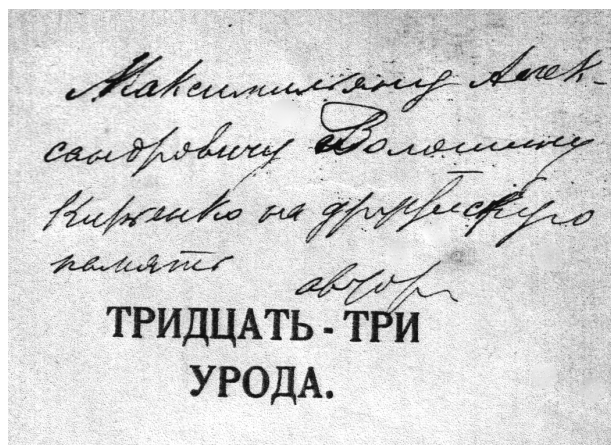 Максимильяну Алек-
сандровичу Волошину
на дружескую
память автор
ТРИДЦАТЬ - ТРИ
УРОДА.